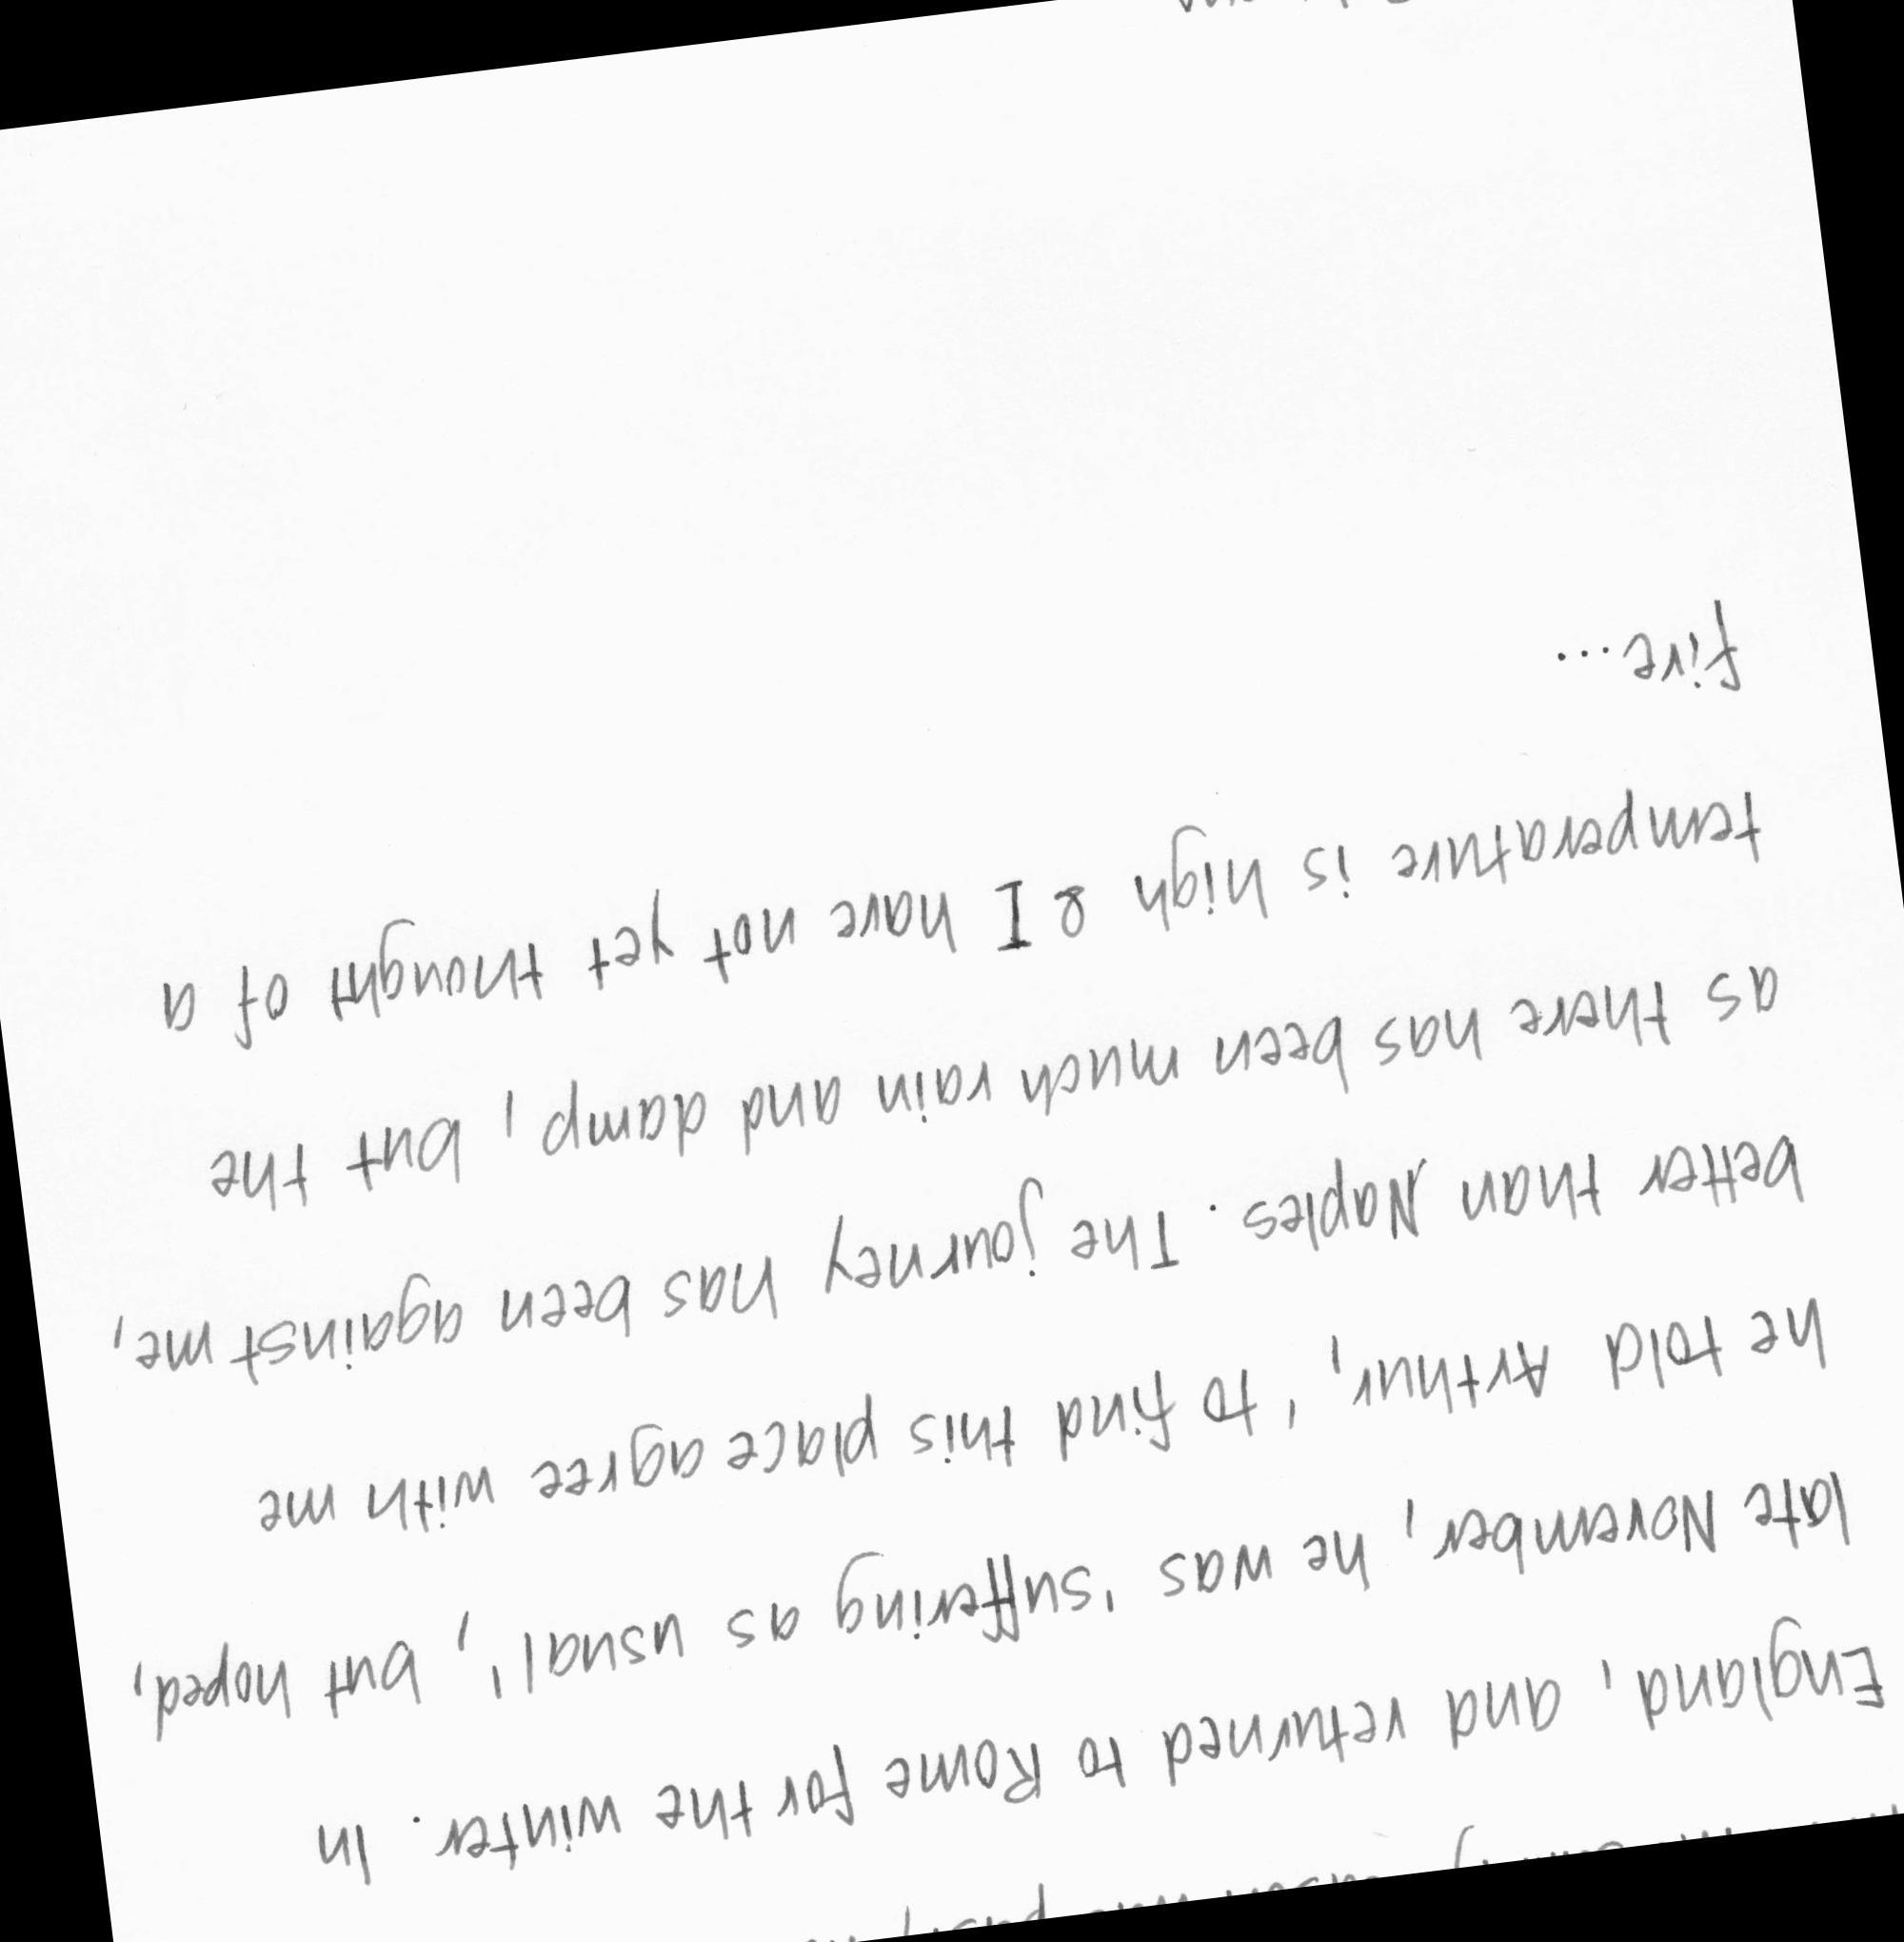 England, and returned to Rome for the winter. In
late November, he was 'suffering as usual', but hoped,
he told Arthur, 'to find this place agree with me
better than Naples. The journey has been against me,
as there has been much rain and damp, but the
temperature is high & I have not yet thought of a
fire...